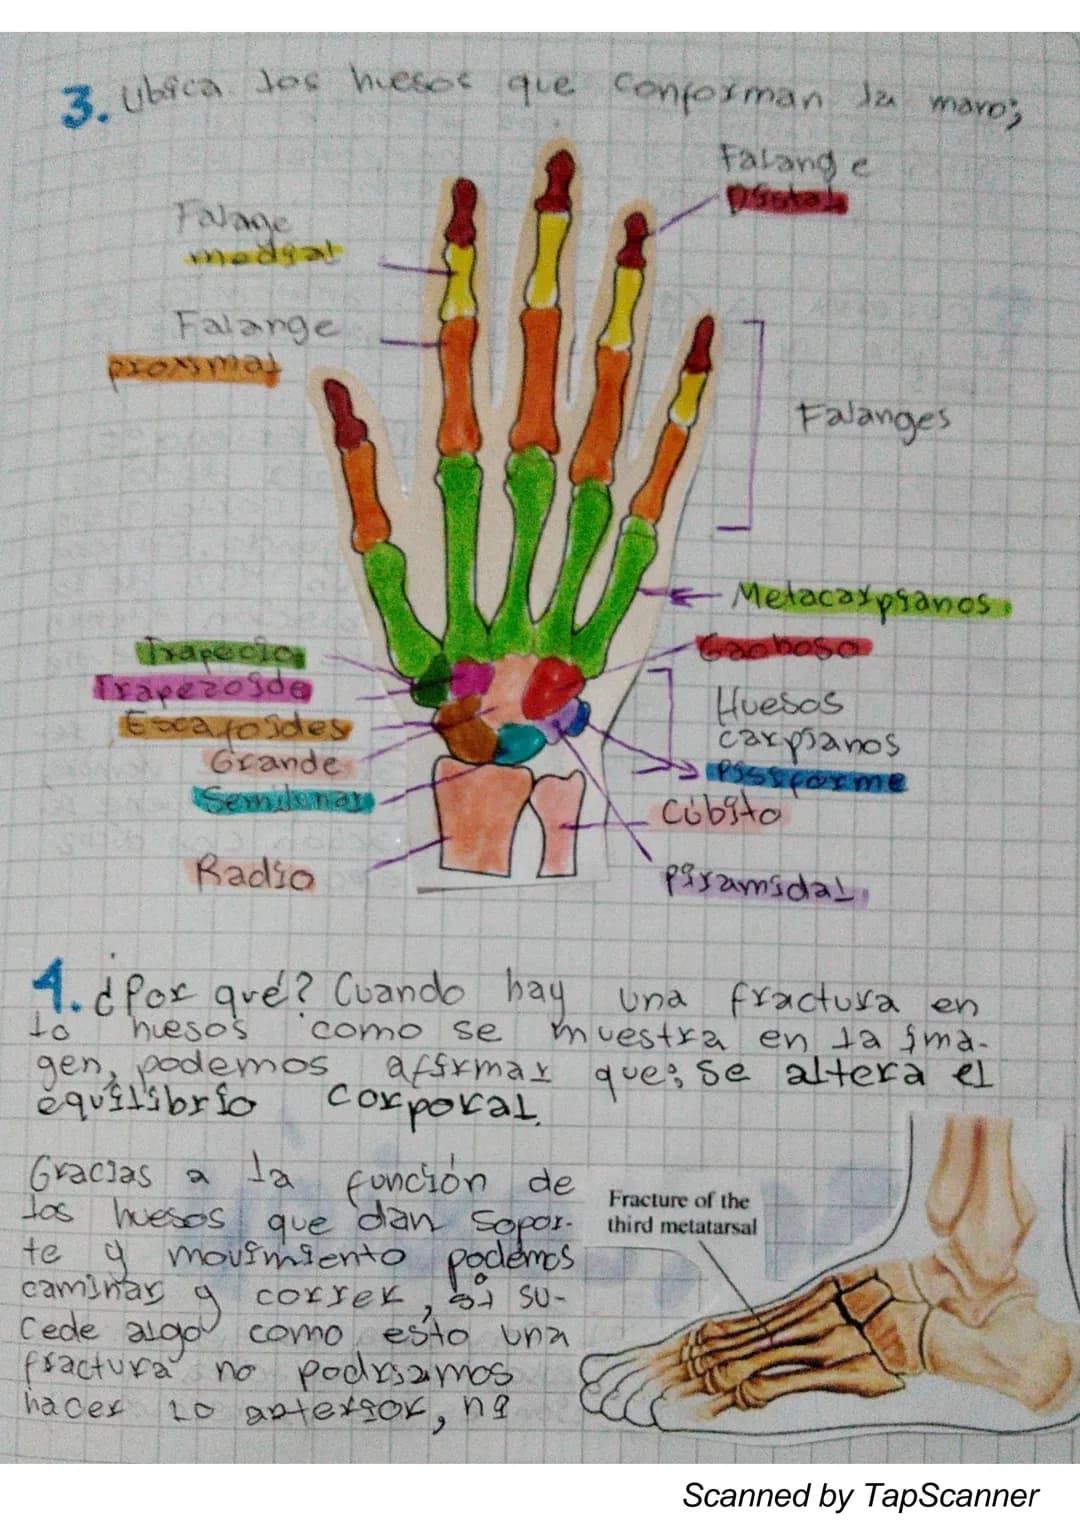 3. Ubica los huesos que conforman la mano;
Falange
Distal
Falage
medial
Falange
proximal
Falanges
Metacarpianos
Trapecio
Ganchoso
Trapezoide
Escafoides
Huesos
carpianos
Grande
Pisiforme
Semilunar
Cúbito
Radio
Piramidal
4. ¿Por qué? Cuando hay una fractura en
lo huesos como se muestra en la ima-
gen, podemos afirmar que; se altera el
equilibrio corporal.
Gracias a la función de
los huesos que dan sopor-
te y movimiento podemos
caminar y correr, si su-
cede algo como esto una
fractura no podriamos
hacer lo anterior, ni
Fracture of the
third metatarsal
Scanned by TapScanner